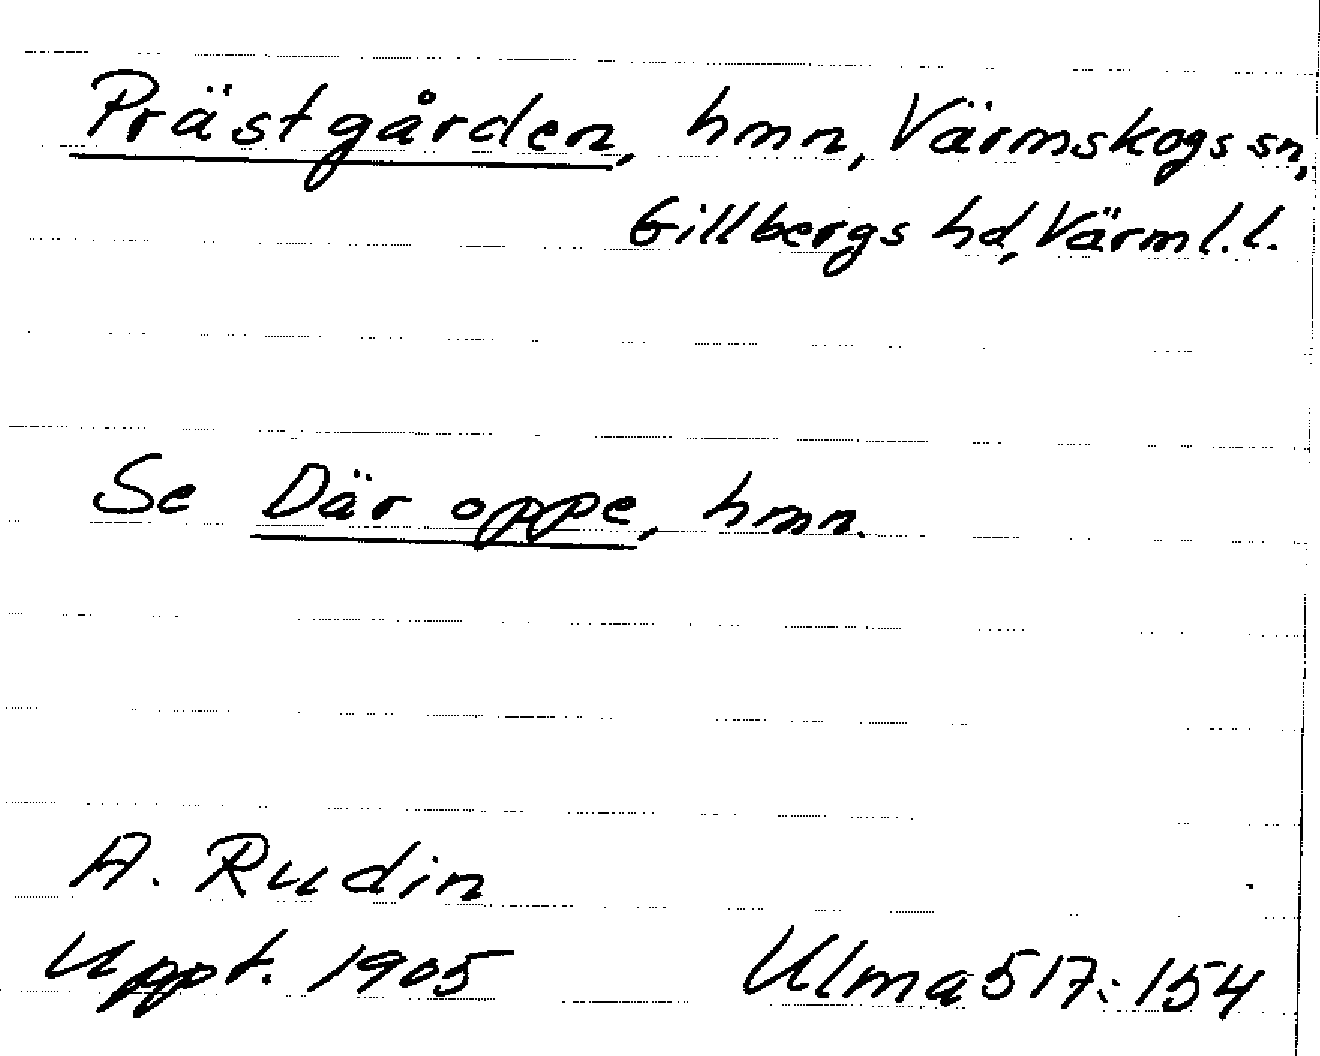 Prästgården, hmn, Värmskogs sn,
Gillbergs hd, Värml. l.
Se Där oppe, hmn.
A. Rudin
Uppt. 1905 Ulma 517:154